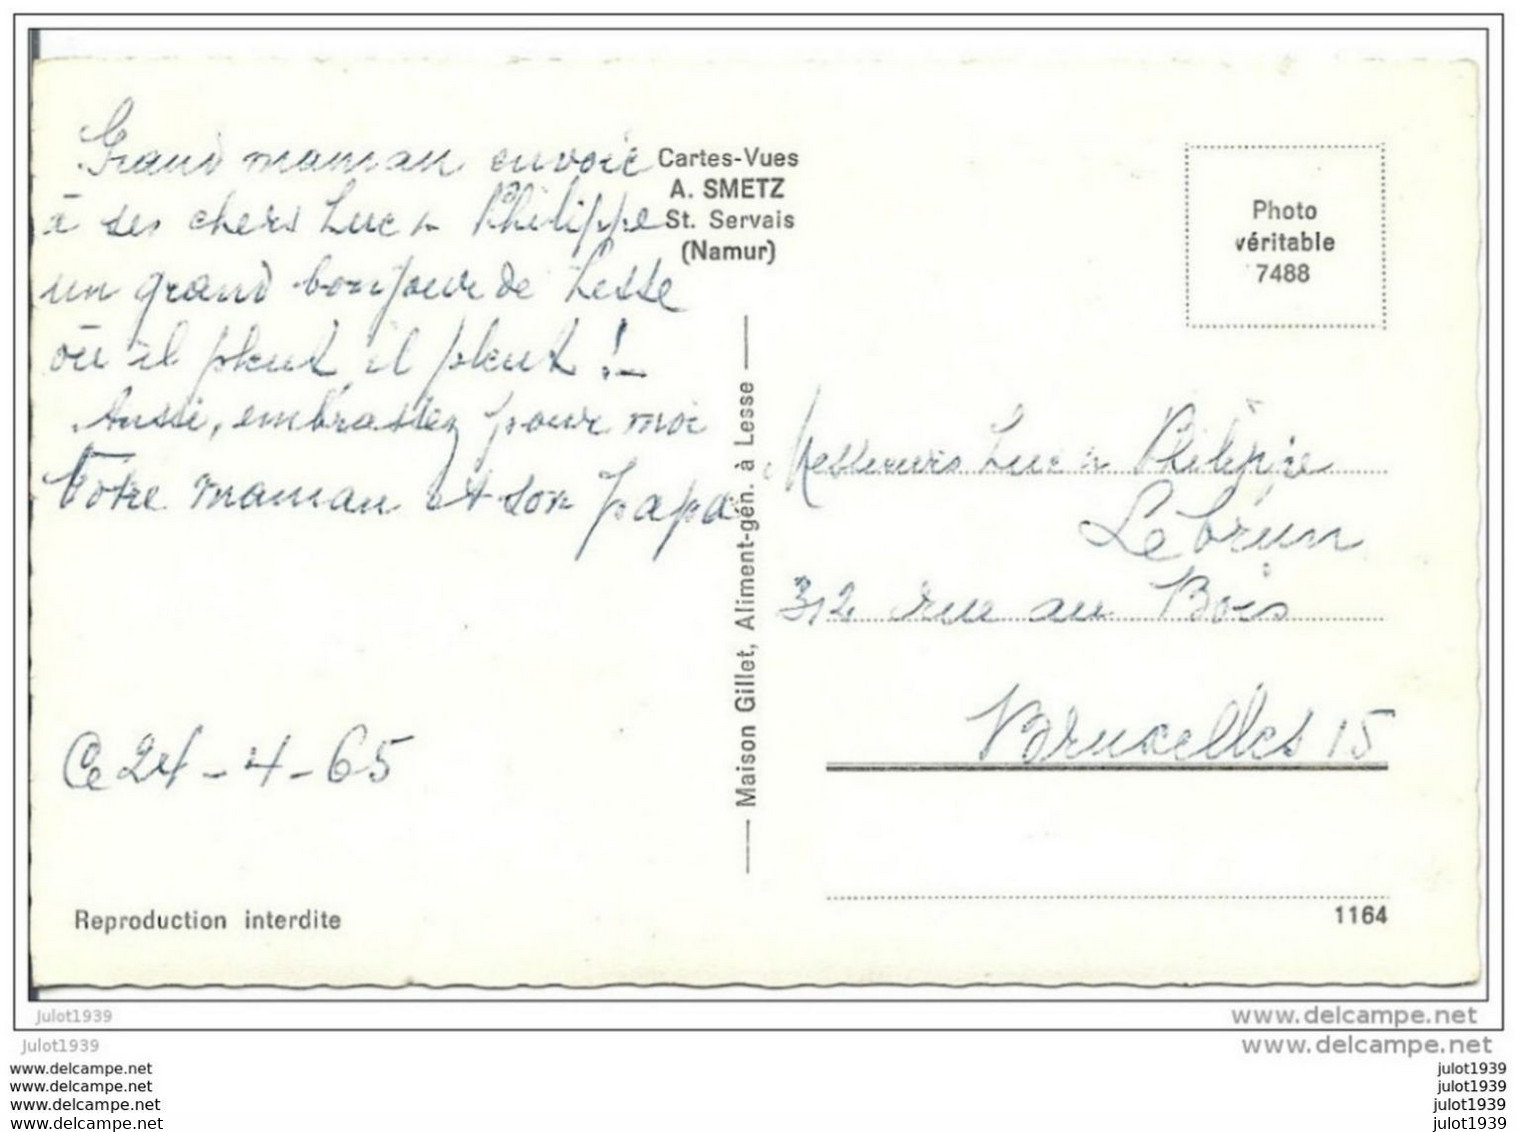 Grand maman envoie
à ses chers Luc & Philippe
un grand bonjour de Lesse
où il pleut, il pleut !
Aussi, embrassez pour moi
Votre maman et son papa
Ce 24-4-65
Reproduction interdite
Cartes-Vues
A. SMETZ
St. Servais
(Namur)
Maison Gillet, Aliment-gén. à Lesse
Photo
véritable
7488
Messieurs Luc & Philippe
Lebrun
312 rue au Bois
Bruxelles 15
1164
Julot1939
www.delcampe.net
Julot1939
www.delcampe.net
www.delcampe.net
julot1939
www.delcampe.net
julot1939
www.delcampe.net
julot1939
www.delcampe.net
julot1939